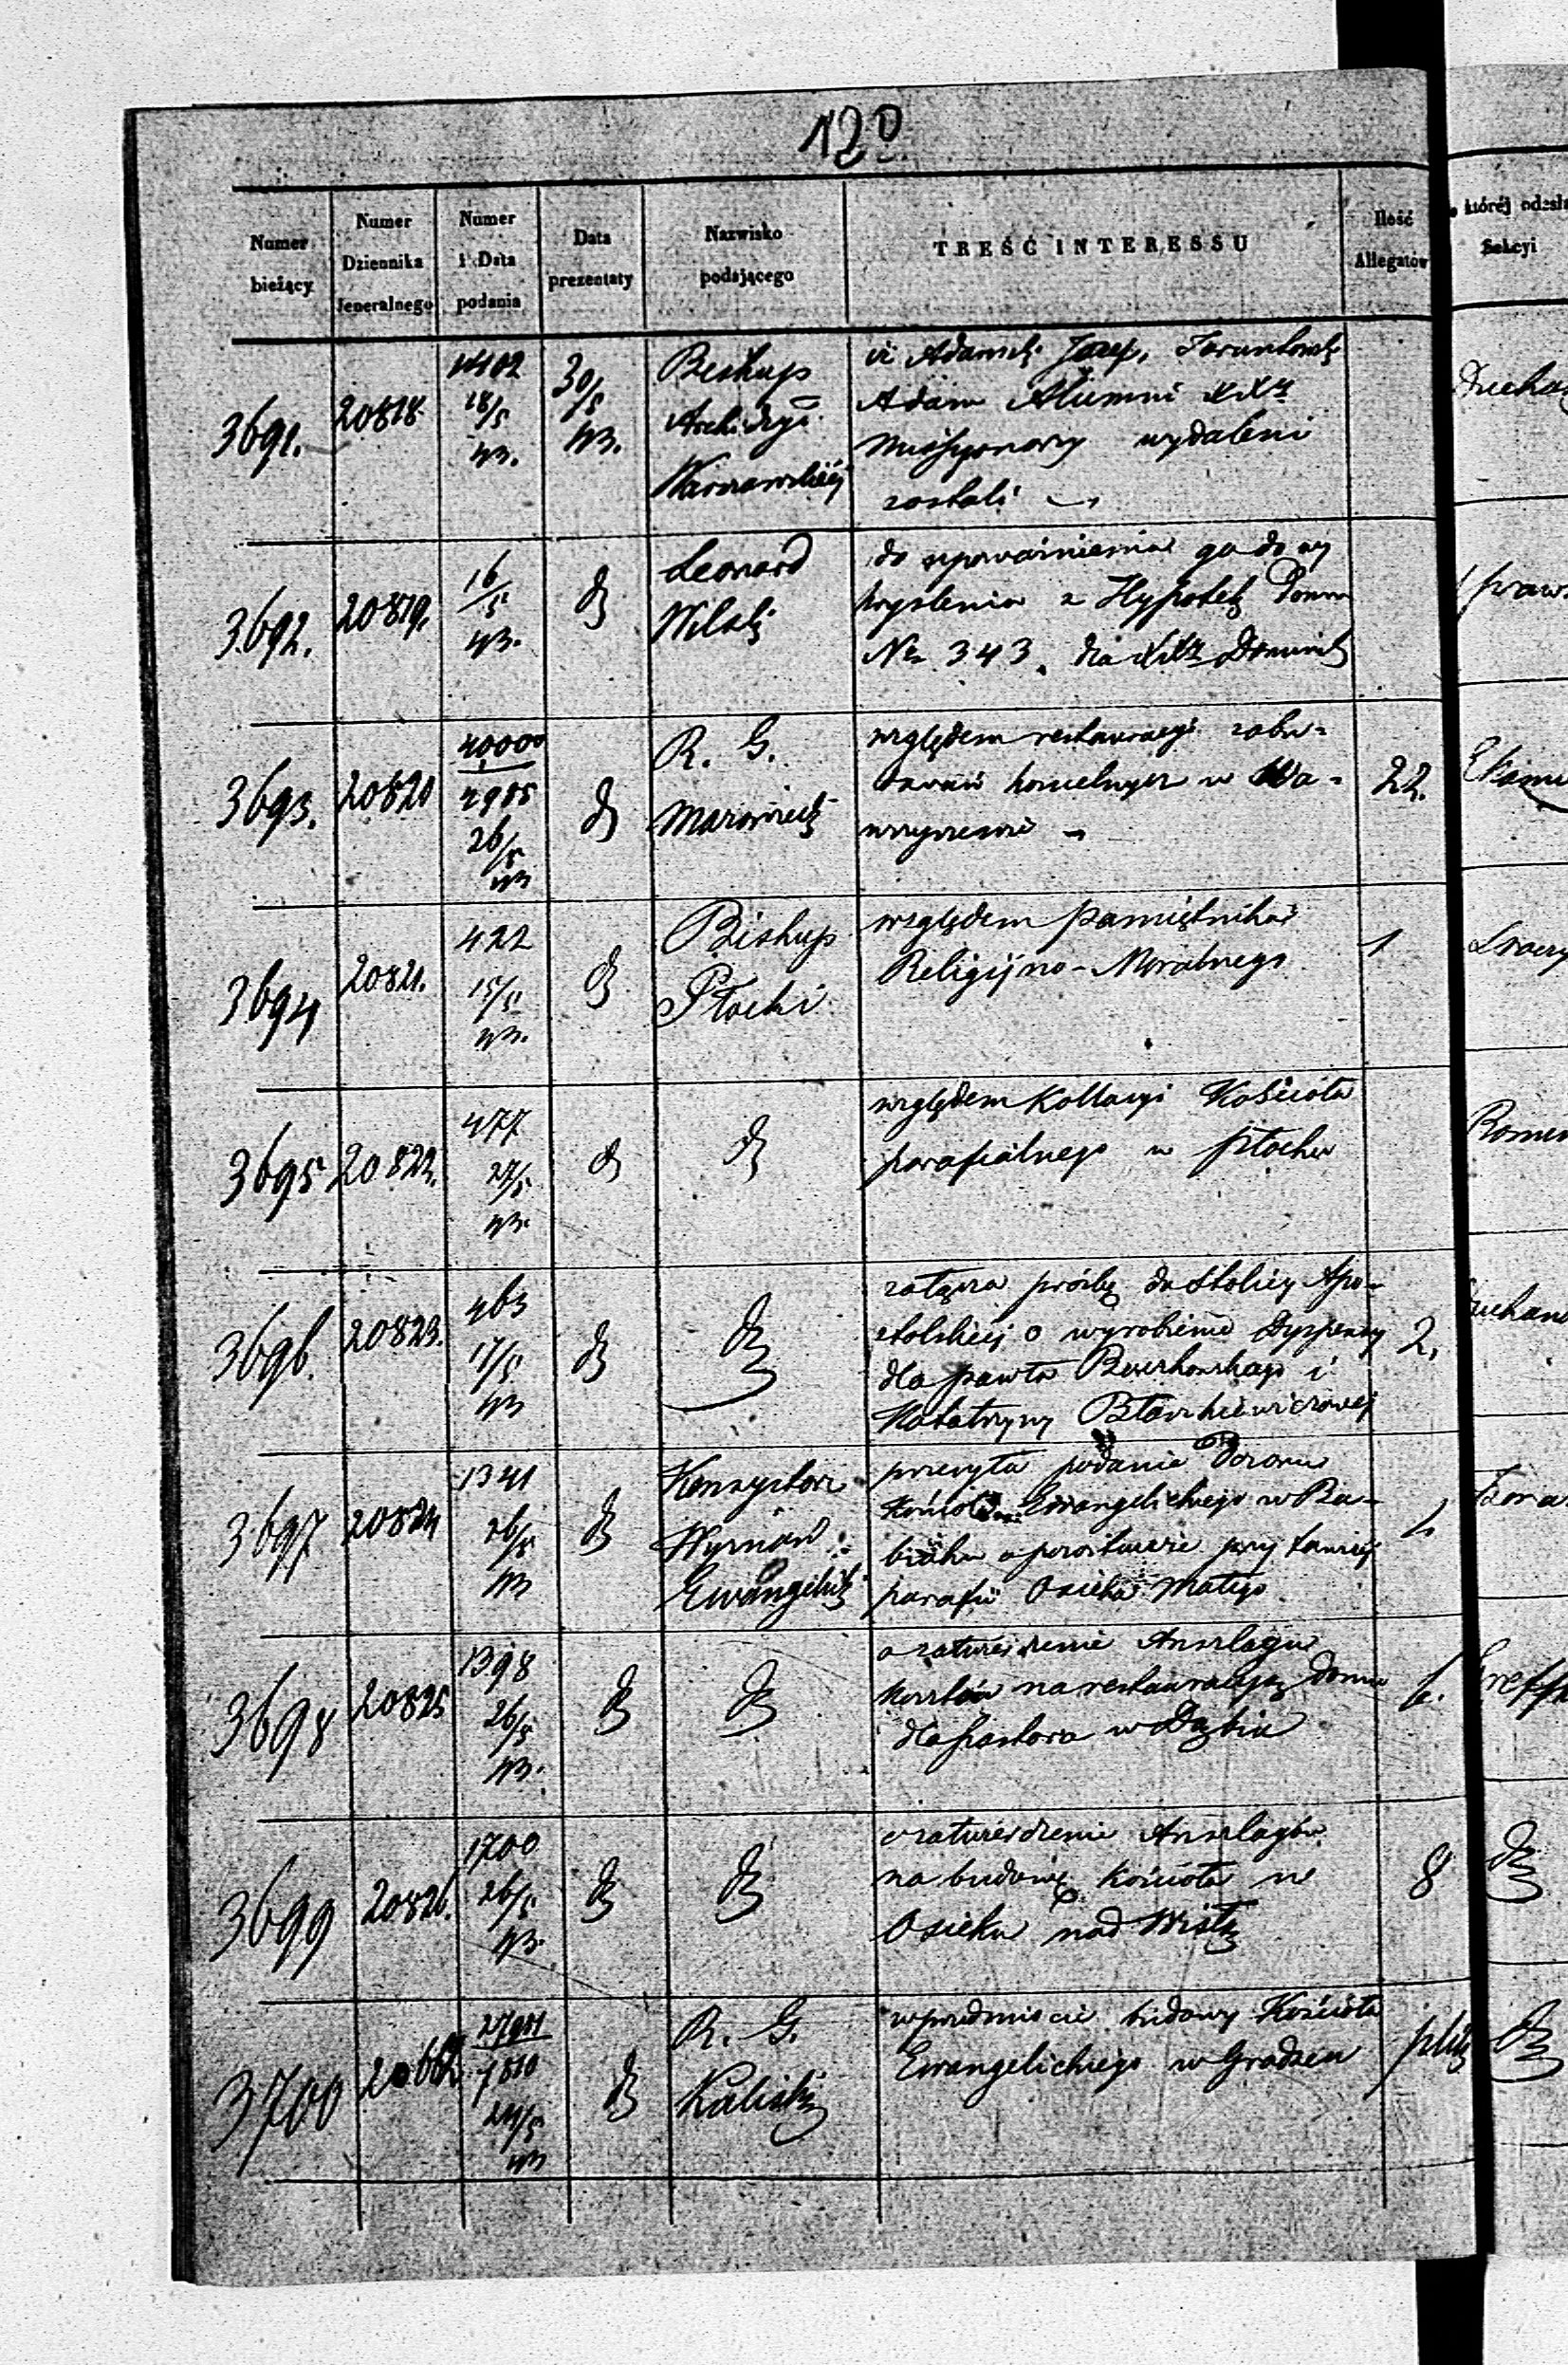 120
Numer bieżący
Numer Dziennika Jeneralnego
Numer i Data podania
Data prezentaty
Nazwisko podającego
TREŚĆ INTERESSU
Ilość Allegatów
której odesła
Sekcyi
3691.
20818
18/5
43.
30/5
43.
Biskup
Archidyec
Warszawskiej
iż Adamski Józef,
Adam Alumni XX
Missyonarzy wydaleni
zostali
3692.
20819.
16/5
43.
d
Leonard
Wilski
do upoważnienia go do wy
kreślenia z Hypoteki Domu
No 343.
3693.
20820
40000
2985
26/5
43
d
R. G.
Mazowiecki
względem restauracyi zabu-
dowań
22.
3694
20821.
422
15/5
43.
d
Biskup
Płocki
względem Pamiętnika
Religijno-Moralnego
1
3695
20822.
477
27/5
43.
d
d
względem Kollacyi Kościoła
parafialnego w Płocku
3696.
20823.
463
17/5
43
d
d
załącza prośbę do Stolicy Apo-
stolskiej o wyrobienie dyspensy
dla Pawła
Katarzyny
2.
3697
20824
1341
26/5
43
d
Konsystorz
Wyznań
Ewangelicki
przesyła podanie Dozoru
Kościoła Ewangelickiego w Ba-
biaku o pozostawienie przy tamtejszej
parafii Osieka Małego
3698
20825
1398
26/5
43.
d
d
o zatwierdzenie Anszlagu
kosztów na restauracyą domu
dla pastora w Dąbiu
6.
3699
20826.
1700
26/5
43.
d
d
o zatwierdzenie Anszlagów
na budowę Kościoła w
Osieku nad Wisłą
8
d
3700
24/5
43
d
R. G.
Kaliski
w przedmiocie budowy Kościoła
Ewangelickiego w Grodzcu
plik
d